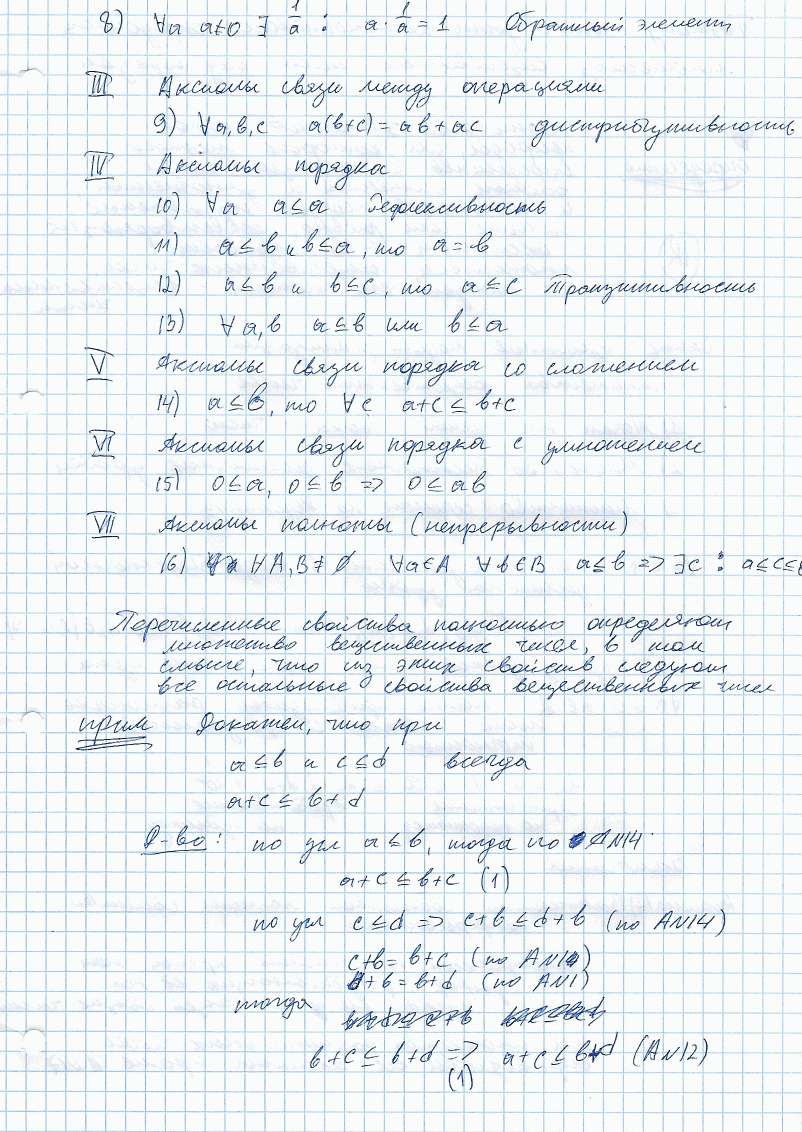 8) ∀a a≠0 ∃ 1/a : a · 1/a = 1 Обратный элемент
III Аксиомы связи между операциями
9) ∀a,b,c a(b+c) = ab + ac дистрибутивность
IV Аксиомы порядка
10) ∀a a ≤ a Рефлексивность
11) a ≤ b и b ≤ a, то a = b
12) a ≤ b и b ≤ c, то a ≤ c Транзитивность
13) ∀a,b a ≤ b или b ≤ a
V Аксиомы связи порядка со сложением
14) a ≤ b, то ∀c a+c ≤ b+c
VI Аксиомы связи порядка с умножением
15) 0 ≤ a, 0 ≤ b => 0 ≤ ab
VII Аксиомы полноты (непрерывности)
16) ∀A,B ≠ ∅ ∀a∈A ∀b∈B a ≤ b => ∃c : a ≤ c ≤ b
Перечисленные свойства полностью определяют
множество вещественных чисел, в том
смысле, что из этих свойств следуют
все остальные свойства вещественных чисел
прим Докажем, что при
a ≤ b и c ≤ d всегда
a+c ≤ b+d
Д-во: по усл a ≤ b, тогда по AN14
a+c ≤ b+c (1)
по усл c ≤ d => c+b ≤ d+b (по AN14)
c+b = b+c (по AN1)
d+b = b+d (по AN1)
тогда
b+c ≤ b+d => a+c ≤ b+d (AN12)
(1)